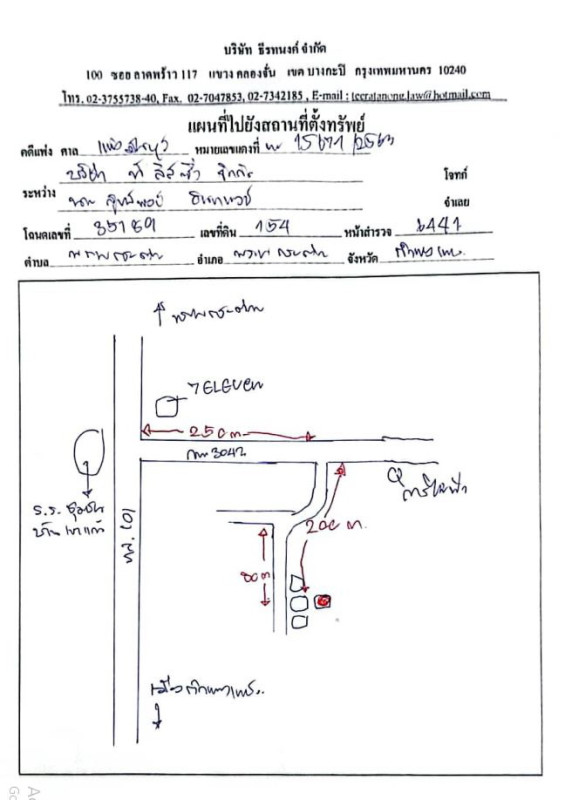 บริษัท ธีรทนงค์ จำกัด
100 ซอย ลาดพร้าว 117 แขวง คลองจั่น เขต บางกะปิ กรุงเทพมหานคร 10240
โทร. 02-3755738-40, Fax. 02-7047853, 02-7342185 , E-mail : teeratanong.law@hotmail.com
แผนที่ไปยังสถานที่ตั้งทรัพย์
คดีแพ่ง ศาล แพ่ง หมายเลขแดงที่ 15671/2563
บริษัท ลิสซิ่ง จำกัด โจทก์
ระหว่าง
นาย จำเลย
โฉนดเลขที่ 35189 เลขที่ดิน 154 หน้าสำรวจ 6441
ตำบล พรานกระต่าย อำเภอ พรานกระต่าย จังหวัด กำแพงเพชร
พรานกระต่าย
7 ELEVEN
250 m
3042
การไฟฟ้า
ร.ร. ชุมชน
บ้านเขาแก้ว
101
200 m.
80 m
เมืองกำแพงเพชร